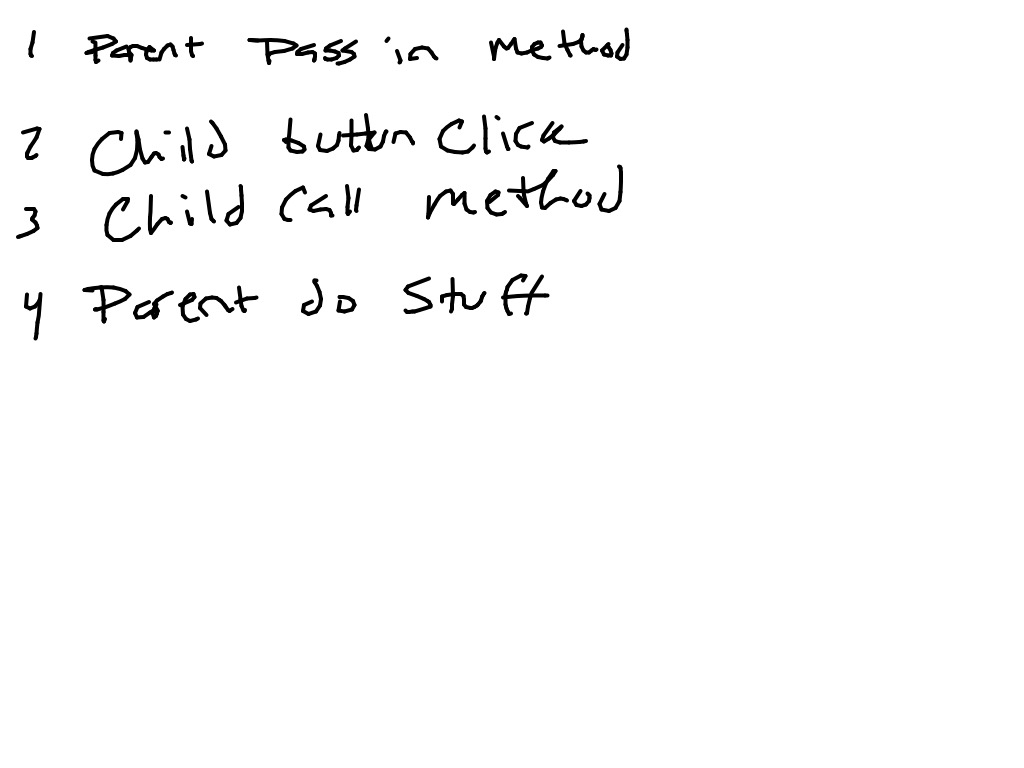 1 Parent Pass in method
2 Child button Click
3 Child Call method
4 Parent do Stuff